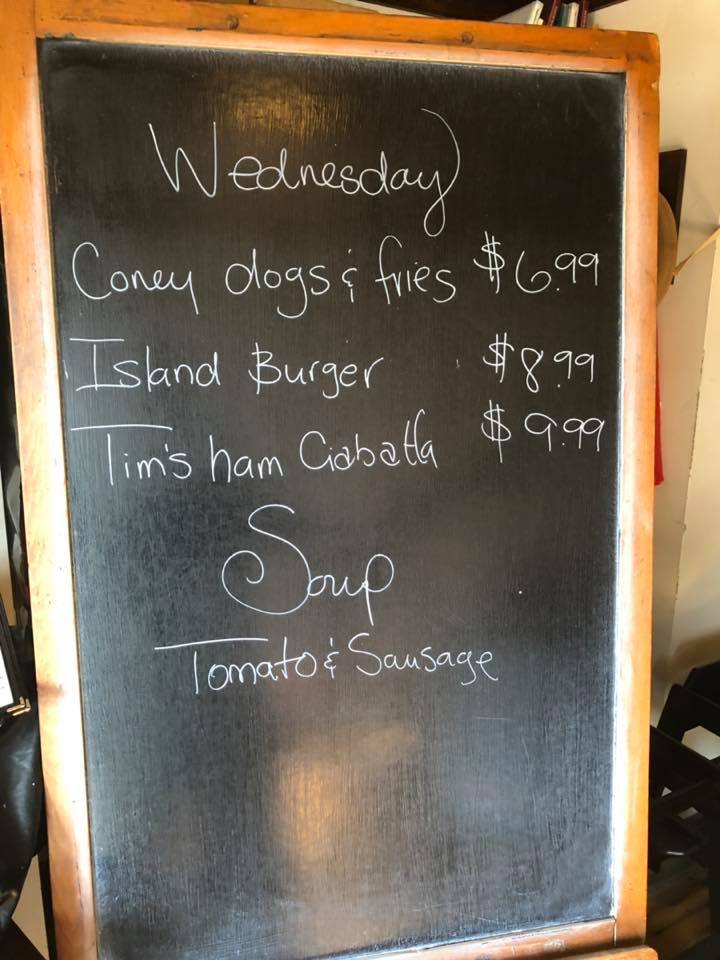 Wednesday
Coney dogs & fries $6.99
Island Burger $8.99
Tim's ham Ciabatta $9.99
Soup
Tomato & Sausage